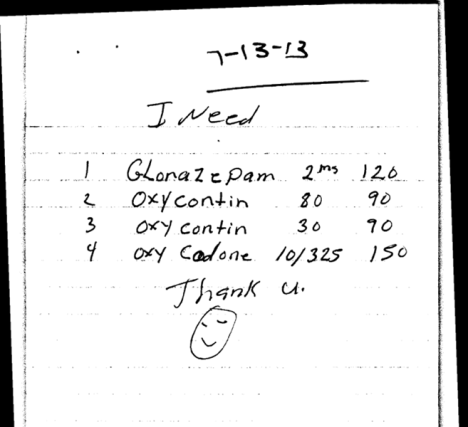 7-13-13
I Need
1 Clonazepam 2mg 120
2 Oxycontin 80 90
3 Oxycontin 30 90
4 Oxy Codone 10/325 150
Thank u.